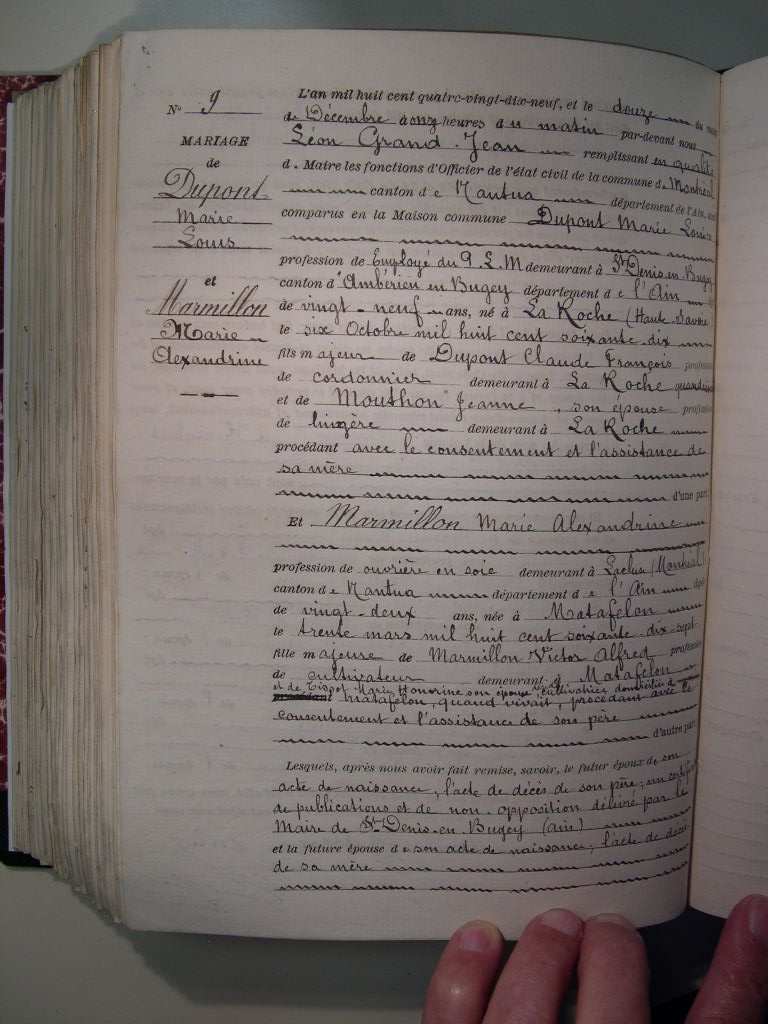 N° 9
MARIAGE
de
Dupont
Marie
Louis
et
Marmillon
Marie
Alexandrine
L'an mil huit cent quatre-vingt-dix-neuf, et le douze du mois
de Décembre à onz heures au matin par-devant nous
Léon Grand-Jean remplissant en qualité
d. Maire les fonctions d'Officier de l'état civil de la commune d. Montréal
canton d e Nantua département de l'Ain, sont
comparus en la Maison commune Dupont Marie Louis
profession de Employé du P. L. M demeurant à St Denis-en-Bugey
canton d'Ambérieu en Bugey département d e l'Ain
de vingt-neuf ans, né à La Roche (Haute-Savoie
le six Octobre mil huit cent soixante-dix
fils majeur de Dupont Claude François profession
de cordonnier demeurant à La Roche quand vivait
et de Mouthon Jeanne, son épouse profession
de lingère demeurant à La Roche
procédant avec le consentement et l'assistance de
sa mère
d'une part
Et Marmillon Marie Alexandrine
profession de ouvrière en soie demeurant à Leclus (Montréal)
canton d e Nantua département d e l'Ain âgée
de vingt-deux ans, née à Matafelon
le trente mars mil huit cent soixante-dix-sept
fille majeure de Marmillon Victor Alfred profession
de cultivateur demeurant à Matafelon
et de Tissot Marie Honorine son épouse cultivatrice domiciliée à
procédant matafelon, quand vivait, procédant avec le
consentement et l'assistance de son père
d'autre part
Lesquels, après nous avoir fait remise, savoir, le futur époux de son
acte de naissance, l'acte de décès de son père, un certificat
de publications et de non-opposition délivré par le
Maire de St Denis-en Bugey (ain)
et la future épouse d e son acte de naissance, l'acte de décès
de sa mère